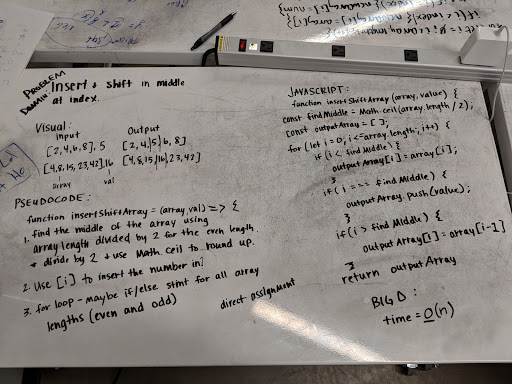 PROBLEM DOMAIN: Insert & shift in middle
at index.
Visual:
Input Output
[2,4,6,8], 5 [2,4,5,6,8]
[4,8,15,23,42],16 [4,8,15,16,23,42]
array val
PSEUDOCODE:
function insertShiftArray = (array, val) => {
1. find the middle of the array using
array length divided by 2 for the even length.
* divide by 2 & use Math.ceil to round up.
2. Use [i] to insert the number in
3. for loop - maybe if/else stmt for all array
lengths (even and odd)
direct assignment
JAVASCRIPT:
function insertShiftArray (array, value) {
const findMiddle = Math.ceil (array.length / 2);
const outputArray = [];
for (let i = 0; i <= array.length; i++) {
if (i < findMiddle) {
outputArray[i] = array[i];
}
if (i === findMiddle) {
outputArray.push(value);
}
if (i > findMiddle) {
outputArray[i] = array[i-1]
}
return outputArray
BIG O:
time = O(n)